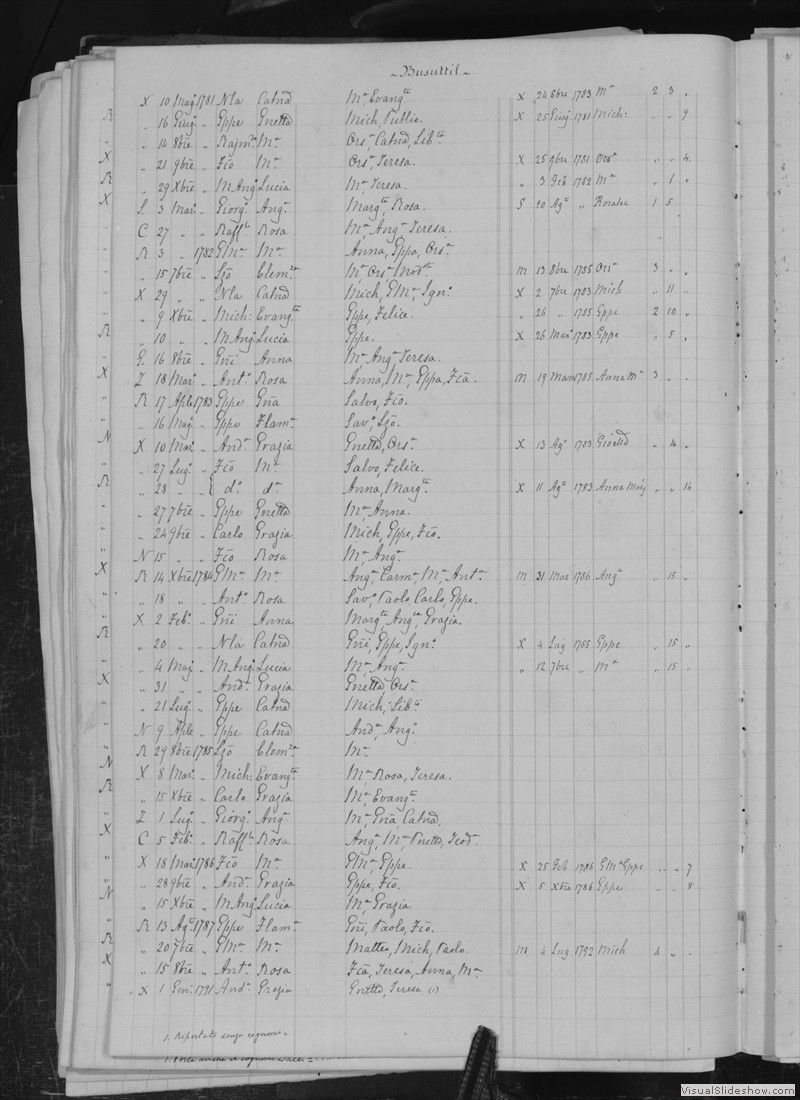 - Busuttil -
X 10 Mag. 1781 Nla Catnd Ma, Evangta X 24 8bre 1783 Ma 2 3 "
R " 16 Giug. " Gppe Gnetta Mich, Publio. X 25 Giug 1781 Mich: " " 9
" " 14 8bre " Rajmdo Ma Orsa, Catnd, Libta
X " 21 9bre " Fco Ma Orsa, Teresa. X 25 9bre 1781 Orsa " " 4
R " 29 Xbre " M Ango Lucia Ma, Teresa. " 3 Feb 1782 Ma " 1 "
X S. 3 Mar. " Giorgo Anga Margta, Rosa. S 20 Ago " Rosalea 1 5
C 27 " " Raffle Rosa Ma, Anga, Teresa.
R 3 " 1782 GMa Ma Anna, Gppa, Orsa
" 15 7bre " Ljo Clemza Ma, Orsa, Modta m 13 8bre 1785 Orsa 3 " "
X 29 " " Nla Catnd Mich, GMa, Igno X 2 7bre 1783 Mich " 11 "
" 9 Xbre " Mich: Evangta Gppe, Felice. " 26 " 1785 Gppe 2 10 "
R " 10 " " M Ango Lucia Gppe. X 26 Mar. 1783 Gppe " 5 "
" G. 16 8bre " Gni Anna Ma, Anga, Teresa.
X Z 18 Mar. " Anto Rosa Anna, Ma, Gppa, Fca. m 19 Mar 1785 Anna Ma 3 " "
" R 17 Aple 1783 Gppe Gna Salvo, Fco.
" " 16 Mag. " Gppe Flama Savo, Ljo.
N X 10 Mar. " Anda Grazia Gnetta, Orsa X 13 Ago 1783 " 4 "
" " 27 Lug. " Fco Ma Salvo, Felice.
R " 28 " " { do da Anna, Margta X 11 Ago 1783 Anna Marg " " 16
" " 27 7bre " Gppe Gnetta Ma, Anna.
" " 24 9bre " Carlo Grazia Mich, Gppe, Fco.
" N 15 " " Fco Rosa Ma, Anga
X R 14 Xbre 1784 GMa Ma Anga, Carma, Ma, Anta m 31 Mar 1786 Anga " 15 "
" " 18 " " Anto Rosa Savo, Paolo, Carlo, Gppe.
" X 2 Feb. " Gni Anna Margta, Anga, Grazia.
R " 20 " " Nla Catnd Gni, Gppe, Igno X 4 Lug 1785 Gppe " 15 "
" " 4 Mag. " M Ango Lucia Ma, Anga " 12 7bre " Ma " 15 "
X " 31 " " Anda Grazia Gnetta, Orsa
" " 21 Lug. " Gppe Catnd Mich, Libta
" N 9 Aple " Gppe Catnd Anda, Ango
" R 29 8bre 1785 Ljo Clemza Ma
N X 8 Mar. " Mich: Evangta Ma, Rosa, Teresa.
R " 15 Xbre " Carlo Grazia Ma, Evangta
" Z 1 Lug. " Giorgo Anga Ma, Gna, Catnd.
X C 5 Feb. " Raffle Rosa Anga, Ma, Pnetta, Teoda
" X 18 Mar. 1786 Fco Ma GMa, Gppe. X 25 Feb 1786 GMa Gppe " " 7
" " 28 9bre " Anda Grazia Gppe, Fco. X 5 Xbre 1786 Gppe " " 8
N " 15 Xbre " M Ango Lucia Ma, Grazia
" R 13 Ago 1787 Gppe Flama Gni, Paolo, Fco.
R " 20 7bre " GMa Ma Matteo, Mich, Paolo. m 4 Lug 1792 Mich 4 " "
X " 15 8bre " Anto Rosa Fca, Teresa, Anna, Ma
" X 1 Gen. 1791 Anda Grazia Gnetta, Teresa (1)
1. Riportato senza cognome =
1. Porta anche il cognome
VisualSlideshow.com